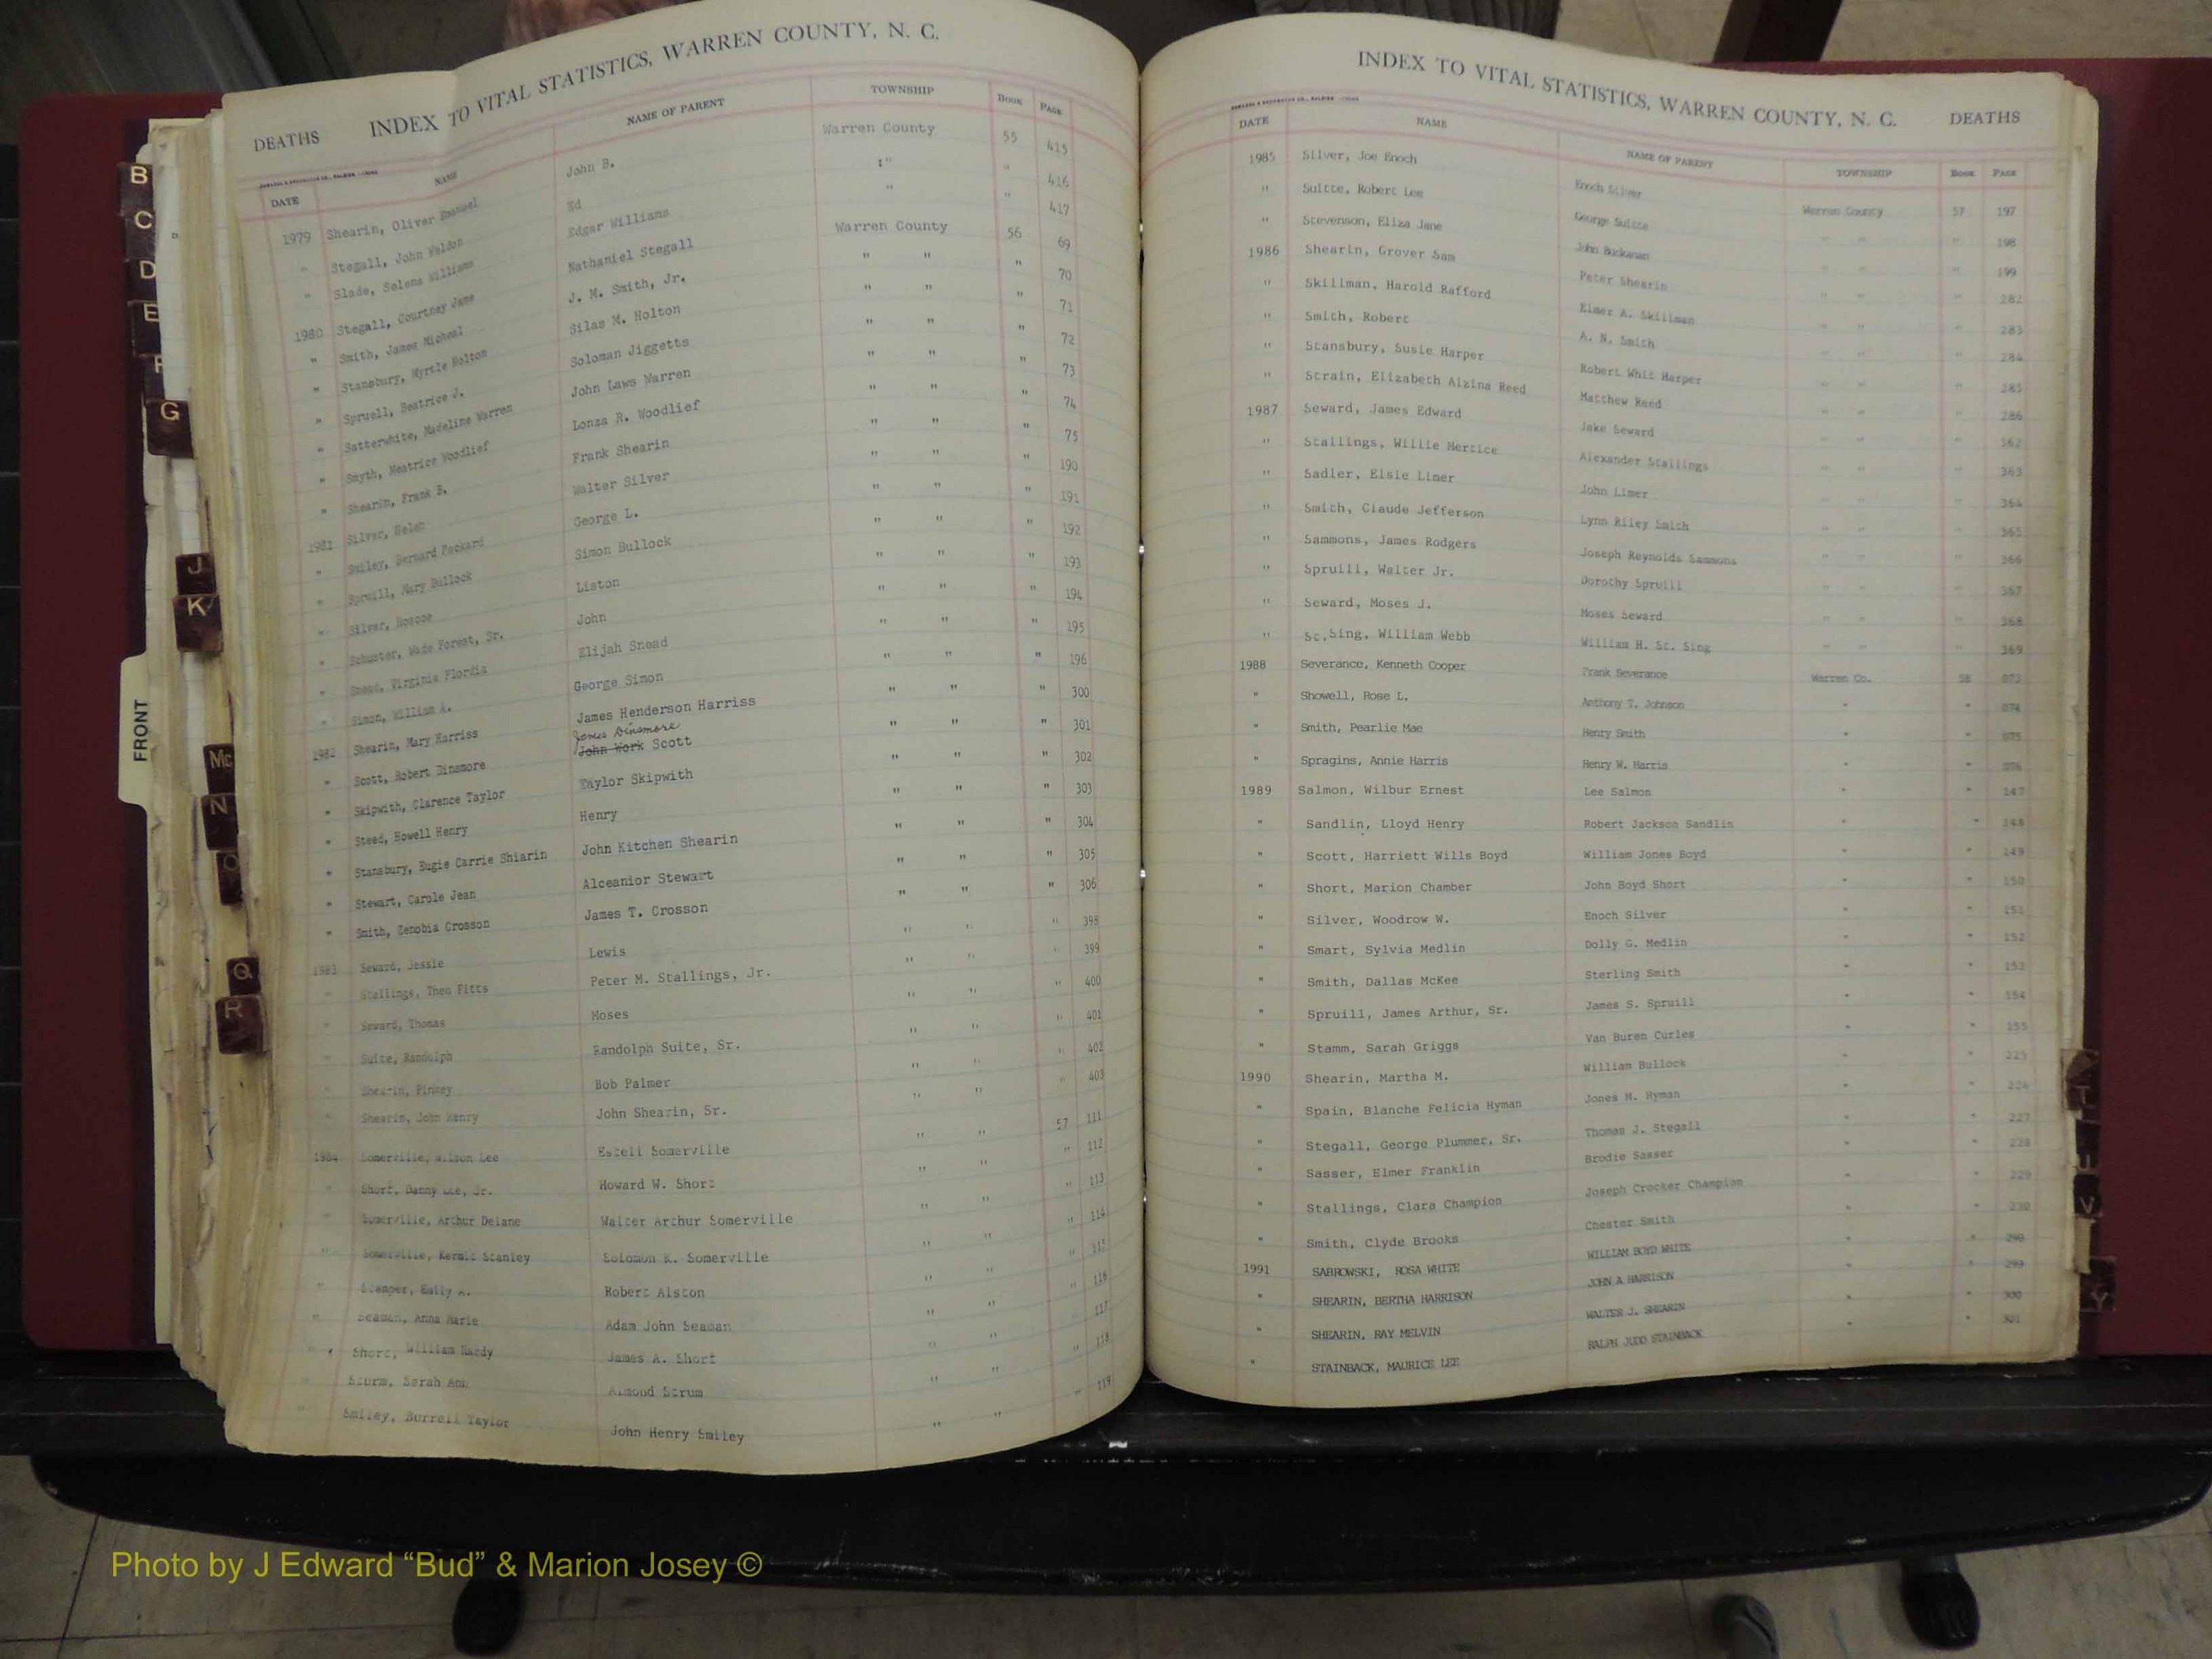 DEATHS INDEX TO VITAL STATISTICS, WARREN COUNTY, N. C.
DATE NAME NAME OF PARENT TOWNSHIP BOOK PAGE
1979 Shearin, Oliver Emanuel John B. Warren County 55 415
" Stegall, John Weldon Ed " " 416
" Slade, Selena Williams Edgar Williams " " 417
1980 Stegall, Courtney Jane Nathaniel Stegall Warren County 56 69
" Smith, James Micheal J. M. Smith, Jr. " " " 70
" Stansbury, Myrtle Holton Silas M. Holton " " " 71
" Spruell, Beatrice J. Soloman Jiggetts " " " 72
" Satterwhite, Madeline Warren John Laws Warren " " " 73
" Smyth, Meatrice Woodlief Lonza R. Woodlief " " " 74
" Shearin, Frank B. Frank Shearin " " " 75
1981 Silver, Helen Walter Silver " " " 190
" Smiley, Bernard Packard George L. " " " 191
" Spruill, Mary Bullock Simon Bullock " " " 192
" Silver, Roscoe Liston " " " 193
" Schuster, Wade Forest, Sr. John " " " 194
" Snead, Virginia Flordia Elijah Snead " " " 195
" Simon, William A. George Simon " " " 196
1982 Shearin, Mary Harriss James Henderson Harriss " " " 300
James Dinsmore
" Scott, Robert Dinsmore John Work Scott " " " 301
" Skipwith, Clarence Taylor Taylor Skipwith " " " 302
" Steed, Howell Henry Henry " " " 303
" Stansbury, Eugie Carrie Shiarin John Kitchen Shearin " " " 304
" Stewart, Carole Jean Alceanior Stewart " " " 305
" Smith, Zenobia Crosson James T. Crosson " " " 306
1983 Seward, Jessie Lewis " " " 398
" Stallings, Theo Fitts Peter M. Stallings, Jr. " " " 399
" Seward, Thomas Moses " " " 400
" Suite, Randolph Randolph Suite, Sr. " " " 401
" Shearin, Pinkey Bob Palmer " " " 402
" Shearin, John Henry John Shearin, Sr. " " " 403
1984 Somerville, Wilson Lee Estell Somerville " " 57 111
" Short, Danny Lee, Jr. Howard W. Short " " " 112
" Somerville, Arthur Delane Walter Arthur Somerville " " " 113
" Somerville, Kermit Stanley Solomon K. Somerville " " " 114
" Stamper, Emily A. Robert Alston " " " 115
" Seaman, Anna Marie Adam John Seaman " " " 116
" Short, William Hardy James A. Short " " " 117
" Sturm, Sarah Ann Almond Strum " " " 118
" Smiley, Burrell Taylor John Henry Smiley " " " 119
INDEX TO VITAL STATISTICS, WARREN COUNTY, N. C. DEATHS
DATE NAME NAME OF PARENT TOWNSHIP BOOK PAGE
1985 Silver, Joe Enoch Enoch Silver Warren County 57 197
" Suitte, Robert Lee George Suitte " " " 198
" Stevenson, Eliza Jane John Buckanan " " " 199
1986 Shearin, Grover Sam Peter Shearin " " " 282
" Skillman, Harold Rafford Elmer A. Skillman " " " 283
" Smith, Robert A. N. Smith " " " 284
" Stansbury, Susie Harper Robert Whit Harper " " " 285
" Strain, Elizabeth Alzina Reed Matthew Reed " " " 286
1987 Seward, James Edward Jake Seward " " " 362
" Stallings, Willie Mertice Alexander Stallings " " " 363
" Sadler, Elsie Limer John Limer " " " 364
" Smith, Claude Jefferson Lynn Riley Smith " " " 365
" Sammons, James Rodgers Joseph Reynolds Sammons " " " 366
" Spruill, Walter Jr. Dorothy Spruill " " " 367
" Seward, Moses J. Moses Seward " " " 368
" St.Sing, William Webb William H. St. Sing " " " 369
1988 Severance, Kenneth Cooper Frank Severance Warren Co. 58 073
" Showell, Rose L. Anthony T. Johnson " " 074
" Smith, Pearlie Mae Henry Smith " " 075
" Spragins, Annie Harris Henry W. Harris " " 076
1989 Salmon, Wilbur Ernest Lee Salmon " " 147
" Sandlin, Lloyd Henry Robert Jackson Sandlin " " 148
" Scott, Harriett Wills Boyd William Jones Boyd " " 149
" Short, Marion Chamber John Boyd Short " " 150
" Silver, Woodrow W. Enoch Silver " " 151
" Smart, Sylvia Medlin Dolly G. Medlin " " 152
" Smith, Dallas McKee Sterling Smith " " 153
" Spruill, James Arthur, Sr. James S. Spruill " " 154
" Stamm, Sarah Griggs Van Buren Curles " " 155
1990 Shearin, Martha M. William Bullock " " 225
" Spain, Blanche Felicia Hyman Jones M. Hyman " " 226
" Stegall, George Plummer, Sr. Thomas J. Stegall " " 227
" Sasser, Elmer Franklin Brodie Sasser " " 228
" Stallings, Clara Champion Joseph Crocker Champion " " 229
" Smith, Clyde Brooks Chester Smith " " 230
1991 SABROWSKI, ROSA WHITE WILLIAM BOYD WHITE " " 298
" SHEARIN, BERTHA HARRISON JOHN A HARRISON " " 299
" SHEARIN, RAY MELVIN WALTER J. SHEARIN " " 300
" STAINBACK, MAURICE LEE RALPH JUDD STAINBACK " " 301
B
C
D
E
F
G
J
K
FRONT
Mc
N
O
Q
R
T
U
V
Y
Photo by J Edward “Bud” & Marion Josey ©